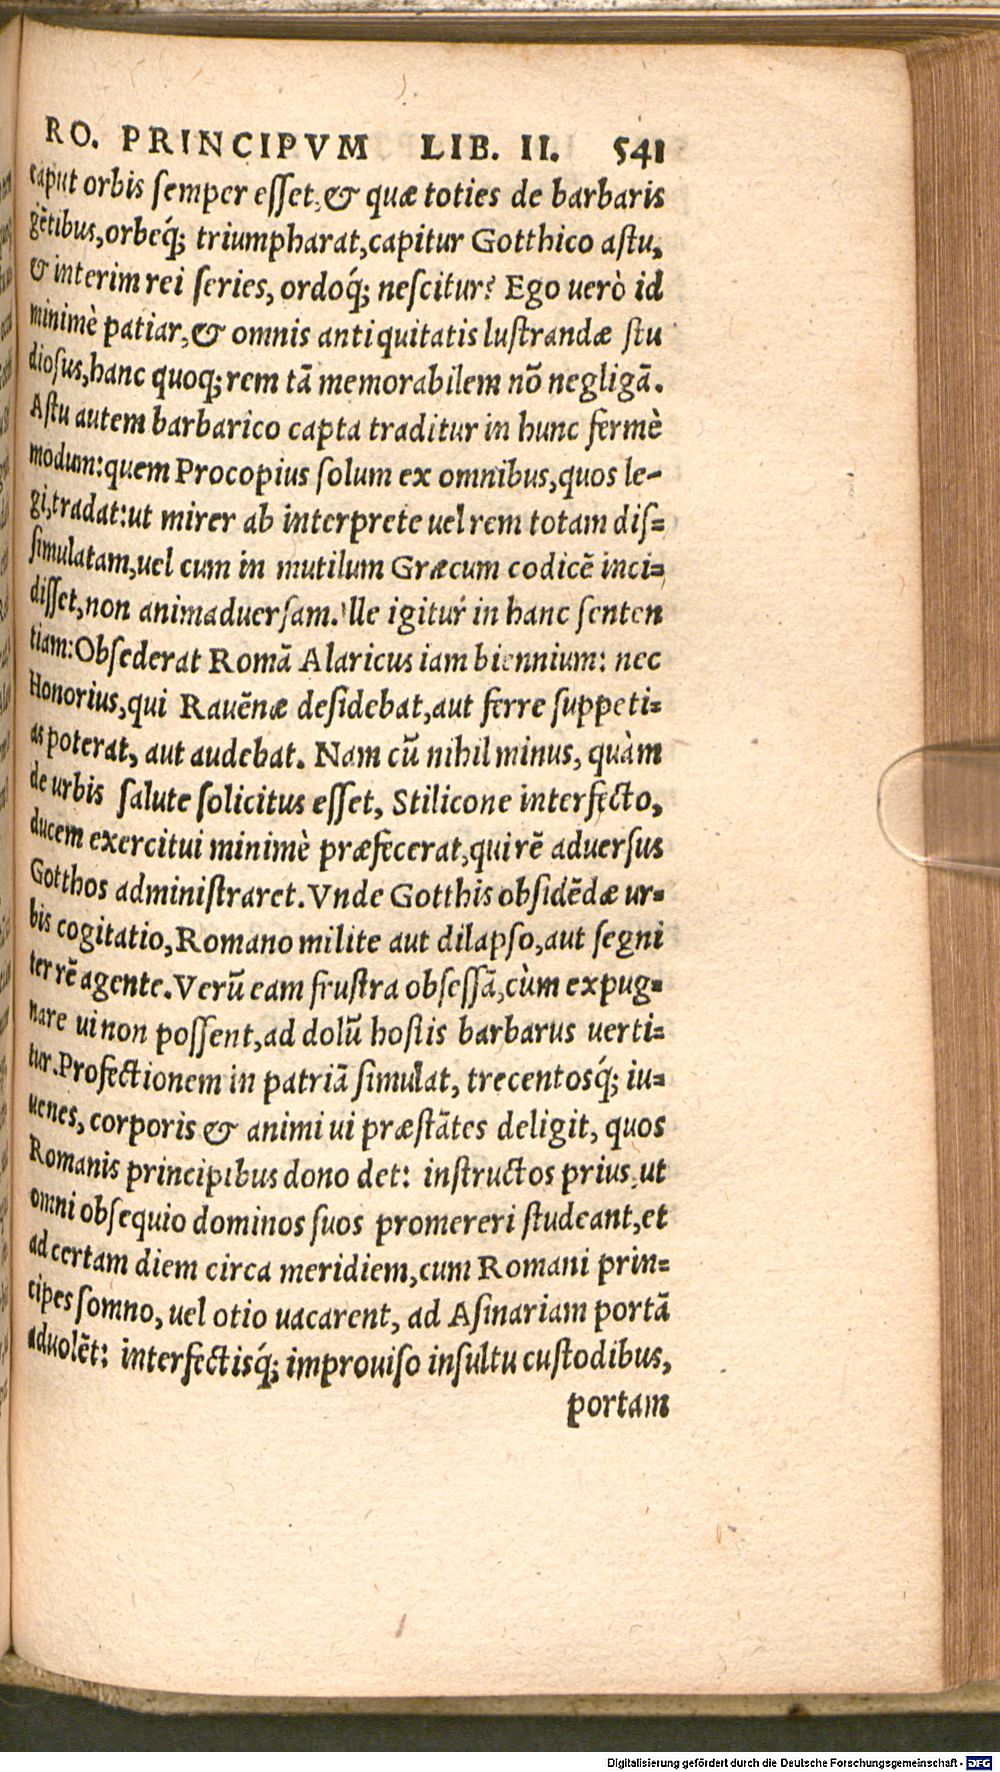 RO. PRINCIPVM LIB. II. 541
caput orbis semper esset, & quæ toties de barbaris
gẽtibus, orbeq́; triumpharat, capitur Gotthico astu,
& interim rei series, ordoq́; nescitur? Ego uerò id
minimè patiar, & omnis antiquitatis lustrandæ stu
diosus, hanc quoq; rem tã memorabilem nõ negligã.
Astu autem barbarico capta traditur in hunc fermè
modum: quem Procopius solum ex omnibus, quos le-
gi, tradat: ut mirer ab interprete uel rem totam dis=
simulatam, uel cum in mutilum Græcum codicẽ inci=
disset, non animaduersam. Ille igitur in hanc senten
tiam: Obsederat Romã Alaricus iam biennium: nec
Honorius, qui Rauẽnæ desidebat, aut ferre suppeti=
as poterat, aut audebat. Nam cũ nihil minus, quàm
de urbis salute solicitus esset, Stilicone interfecto,
ducem exercitui minimè præfecerat, qui rẽ aduersus
Gotthos administraret. Vnde Gotthis obsidẽdæ ur=
bis cogitatio, Romano milite aut dilapso, aut segni
ter rẽ agente. Verũ eam frustra obsessã, cùm expug=
nare ui non possent, ad dolũ hostis barbarus uerti=
tur. Profectionem in patriã simulat, trecentosq́; iu=
uenes, corporis & animi ui præstãtes deligit, quos
Romanis principibus dono det: instructos prius, ut
omni obsequio dominos suos promereri studeant, et
ad certam diem circa meridiem, cum Romani prin=
cipes somno, uel otio uacarent, ad Asinariam portã
aduolẽt: interfectisq́; improuiso insultu custodibus,
portam
Digitalisierung gefördert durch die Deutsche Forschungsgemeinschaft - DFG